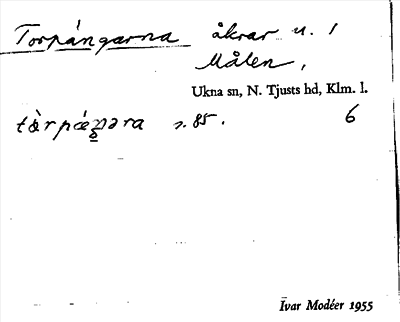 Torpángarna åkrar u. 1
Målen,
Ukna sn, N. Tjusts hd, Klm. l.
s. 85. 6
Ivar Modéer 1955